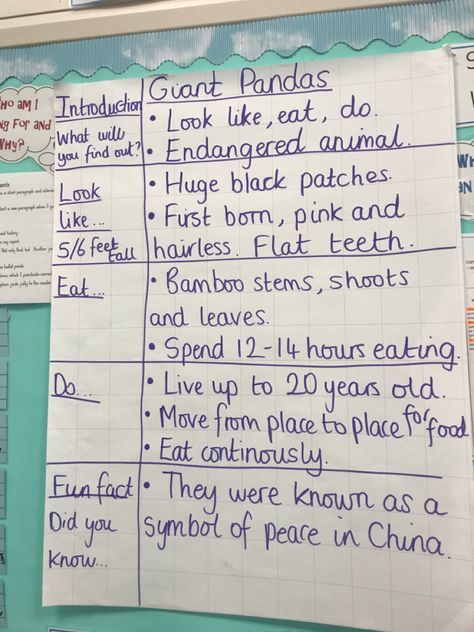 Giant Pandas
Introduction
What will
you find out?
• Look like, eat, do.
• Endangered animal.
Look
like...
5/6 feet
tall
• Huge black patches.
• First born, pink and
hairless. Flat teeth.
Eat...
• Bamboo stems, shoots
and leaves.
• Spend 12-14 hours eating.
Do...
• Live up to 20 years old.
• Move from place to place for food
• Eat continously.
Fun fact
Did you
know...
• They were known as a
symbol of peace in China.
WHO AM I
ng For and
Why?